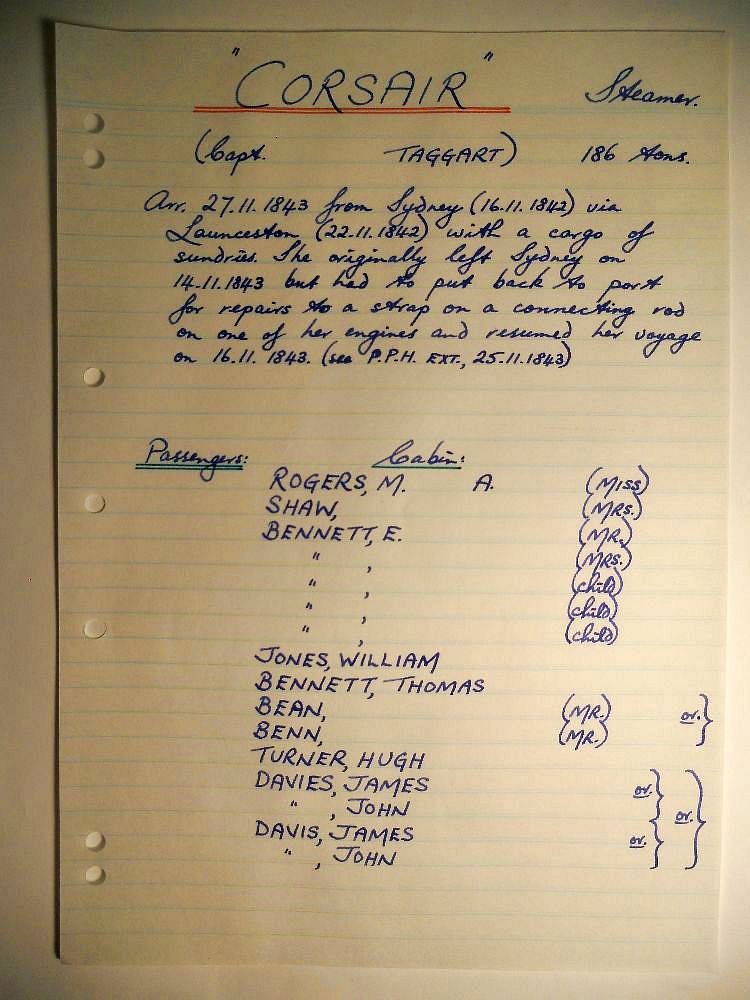 "CORSAIR" Steamer.
(Capt. TAGGART) 186 tons.
Arr. 27.11.1843 from Sydney (16.11.1842) via
Launceston (22.11.1842) with a cargo of
sundries. She originally left Sydney on
14.11.1843 but had to put back to port
for repairs to a strap on a connecting rod
on one of her engines and resumed her voyage
on 16.11.1843. (see P.P.H. EXT., 25.11.1843)
Passengers: Cabin:
ROGERS, M. A. (MISS)
SHAW, (MRS.)
BENNETT, E. (MR.)
" , (MRS.)
" , (child)
" , (child)
" , (child)
JONES, WILLIAM
BENNETT, THOMAS
BEAN, (MR.) or. }
BENN, (MR.)
TURNER, HUGH
DAVIES, JAMES or. }
" , JOHN or. }
DAVIS, JAMES or. }
" , JOHN